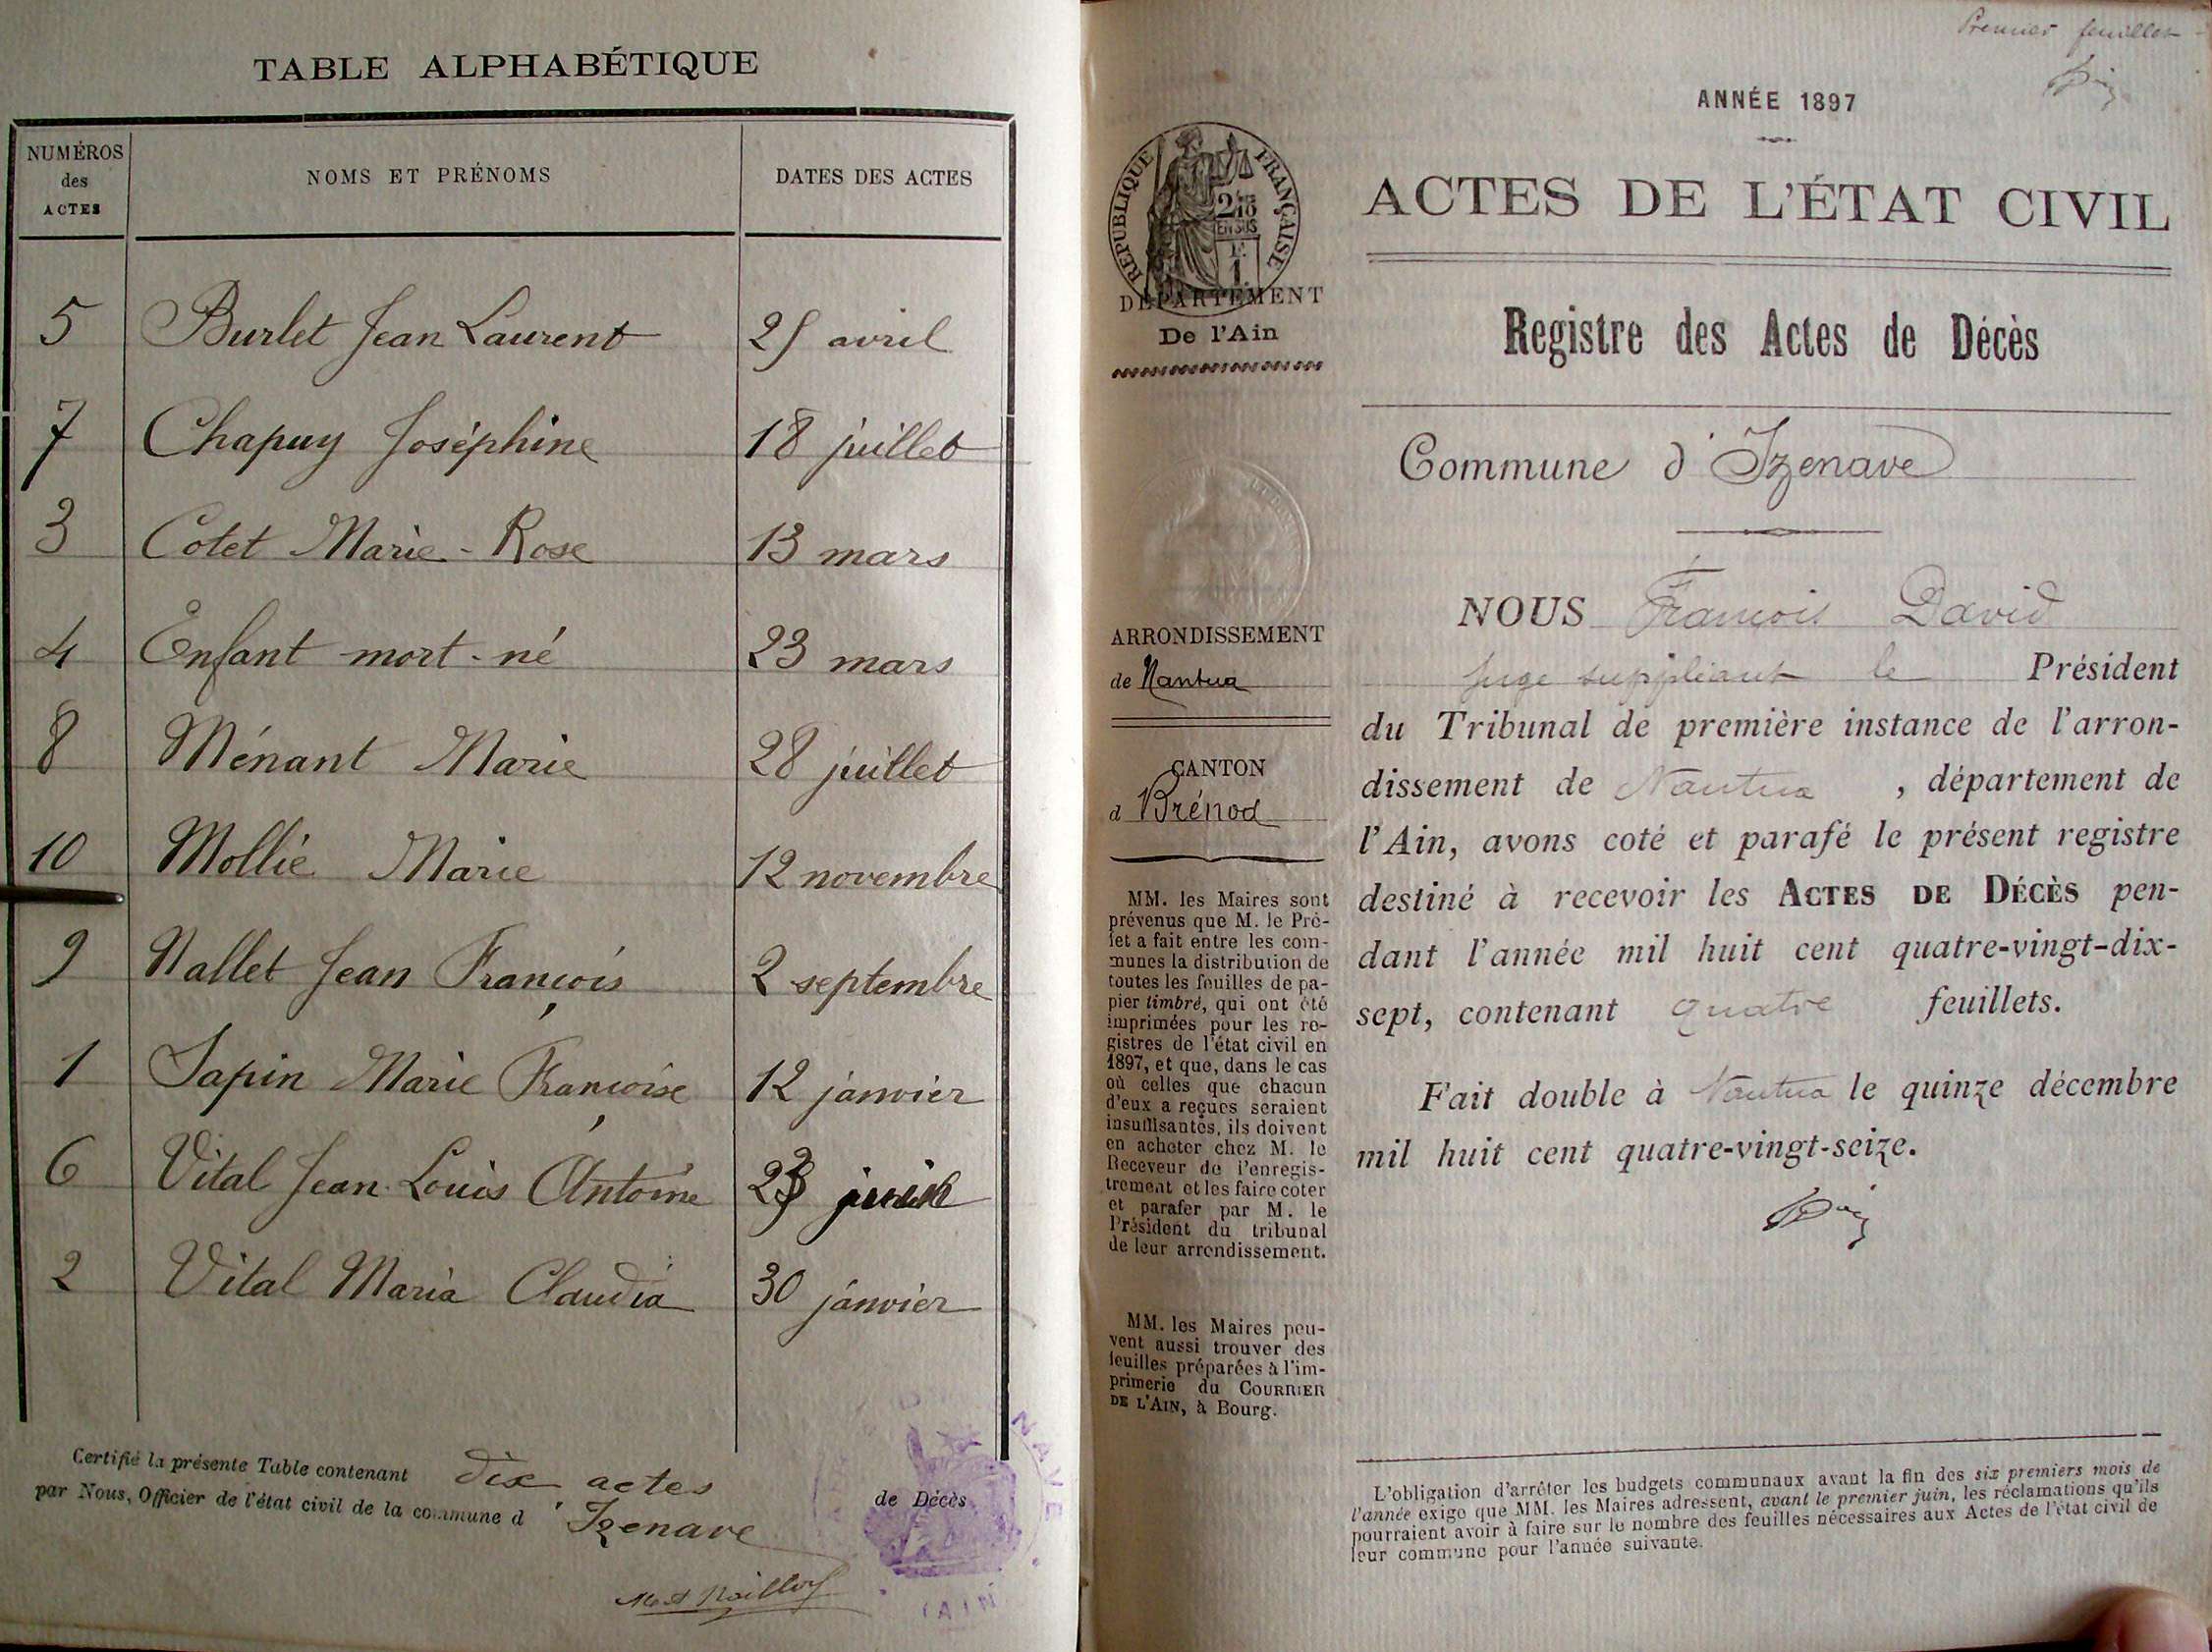 TABLE ALPHABÉTIQUE
NUMÉROS des ACTES NOMS ET PRÉNOMS DATES DES ACTES
5 Burlet Jean Laurent 25 avril
7 Chapuy Joséphine 18 juillet
3 Cotet Marie-Rose 13 mars
4 Enfant mort-né 23 mars
8 Ménant Marie 28 juillet
10 Mollié Marie 12 novembre
9 Nallet Jean François 2 septembre
1 Sapin Marie Françoise 12 janvier
6 Vital Jean Louis Antoine
2 Vital Maria Claudia 30 janvier
Certifié la présente Table contenant dix actes
de Décès
par Nous, Officier de l'état civil de la commune d'Izenave
Premier feuillet
ANNÉE 1897
ACTES DE L'ÉTAT CIVIL
Registre des Actes de Décès
Commune d'Izenave
NOUS François David
Juge suppléant le Président
du Tribunal de première instance de l'arron-
dissement de Nantua, département de
l'Ain, avons coté et parafé le présent registre
destiné à recevoir les ACTES DE DÉCÈS pen-
dant l'année mil huit cent quatre-vingt-dix-
sept, contenant quatre feuillets.
Fait double à Nantua le quinze décembre
mil huit cent quatre-vingt-seize.
L'obligation d'arrêter les budgets communaux avant la fin des six premiers mois de
l'année exige que MM. les Maires adressent, avant le premier juin, les réclamations qu'ils
pourraient avoir à faire sur le nombre des feuilles nécessaires aux Actes de l'état civil de
leur commune pour l'année suivante.
RÉPUBLIQUE FRANÇAISE
DÉPARTEMENT
De l'Ain
ARRONDISSEMENT
de Nantua
CANTON
d Brénod
MM. les Maires sont
prévenus que M. le Pré-
fet a fait entre les com-
munes la distribution de
toutes les feuilles de pa-
pier timbré, qui ont été
imprimées pour les re-
gistres de l'état civil en
1897, et que, dans le cas
où celles que chacun
d'eux a reçues seraient
insuffisantes, ils doivent
en acheter chez M. le
Receveur de l'enregis-
trement et les faire coter
et parafer par M. le
Président du tribunal
de leur arrondissement.
MM. les Maires peu-
vent aussi trouver des
feuilles préparées à l'im-
primerie du COURRIER
DE L'AIN, à Bourg.